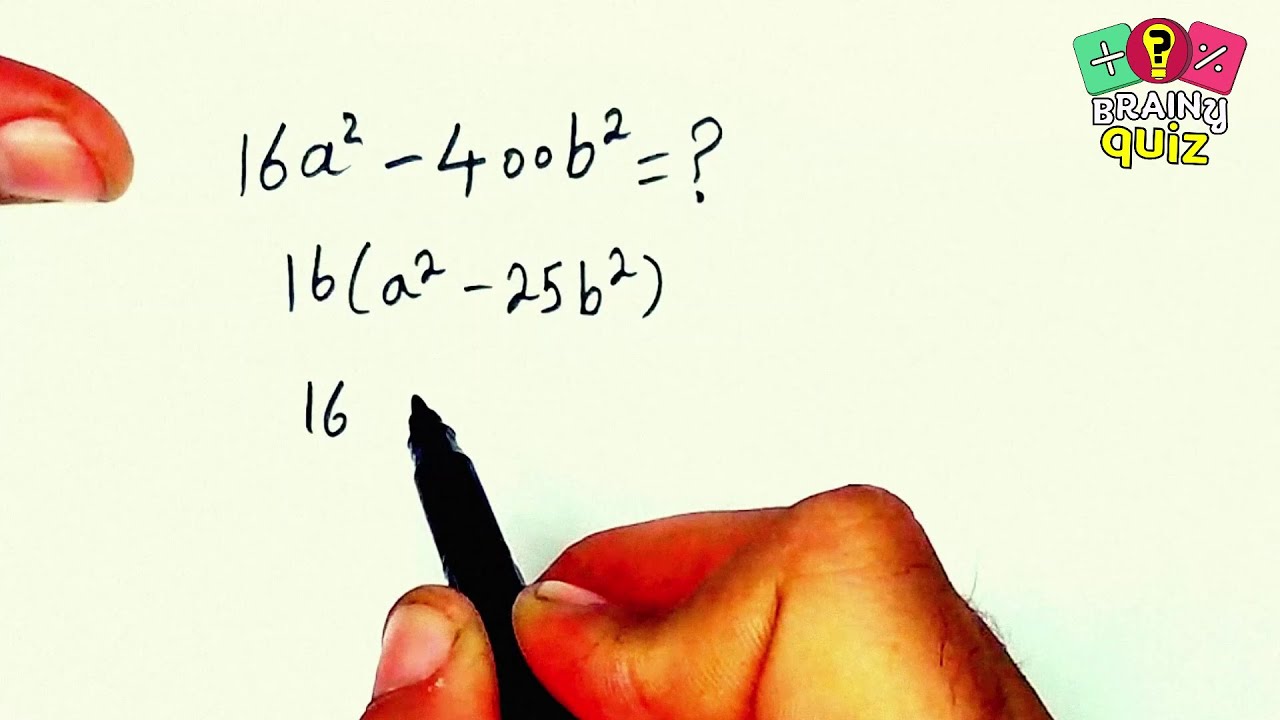 16a² - 400b² = ?
16(a² - 25b²)
16
+ ? %
BRAINy
quiz